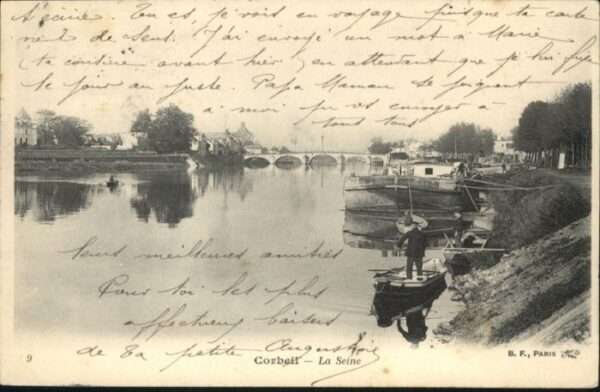 Tu es je vois en voyage puisque ta carte
vient de Sens J'ai envoyé un mot à Marie
ta cousine avant hier, en attendant que je lui fixe
le jour au juste. Papa Maman se joignent
à moi pr vs envoyer à
tous tous
leurs meilleures amitiés
Pour toi les plus
affectueux baisers
de Ta petite Augustine
9 Corbeil – La Seine
B. F., PARIS